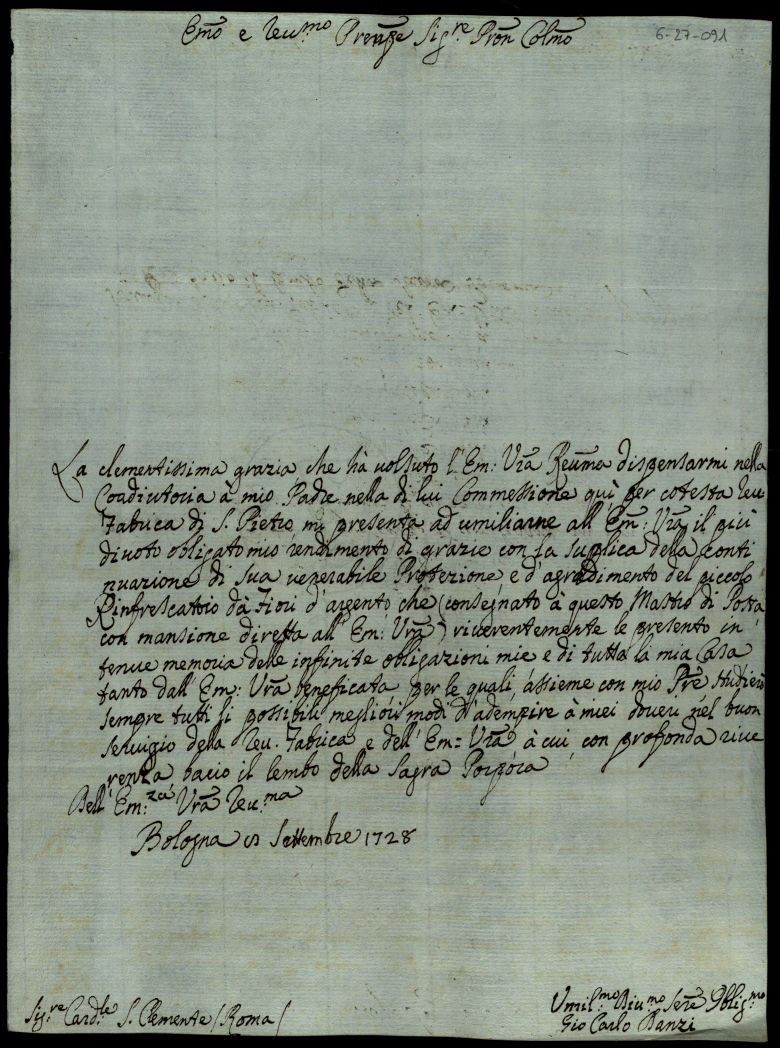 Emo e Reu.mo Prenpe Sig.re Pron Colmo
6-27-091
La clementissima grazia che hà uolsuto l'Em: Vrã Reuma dispensarmi nella
Coadiutoria à mio Padre nella di lui Commessione quì per cotesta Reu
Fabrica di S. Pietro mi presenta ad umiliarne all'Em: Vrã il più
diuoto obligato mio rendimento di grazie con la suplica della conti
nuazione di sua uenerabile Protezione e d'agradimento del piccolo
Rinfrescatoio dà Fiori d'argento che (consegnato à questo Mastro di Posta
con mansione diretta all'Em: Vrã) riuerentemente le presento in
tenue memoria delle infinite obligazioni mie e di tutta la mia Casa
tanto dall'Em: Vrã beneficata per le quali, assieme con mio Pre studierò
sempre tutti li possibili megliori modi d'adempire à miei doueri nel buon
seruigio della Reu. Fabrica e dell'Em: Vrã, à cui con profonda riue
renza bacio il lembo della Sagra Porpora
Dell'Em:zza Vrã Reu.ma
Bologna Settembre 1728
Sig.re Card.le S. Clemente / Roma /
Umil.mo Diu.mo Sere Oblig.mo
Gio Carlo Banzi